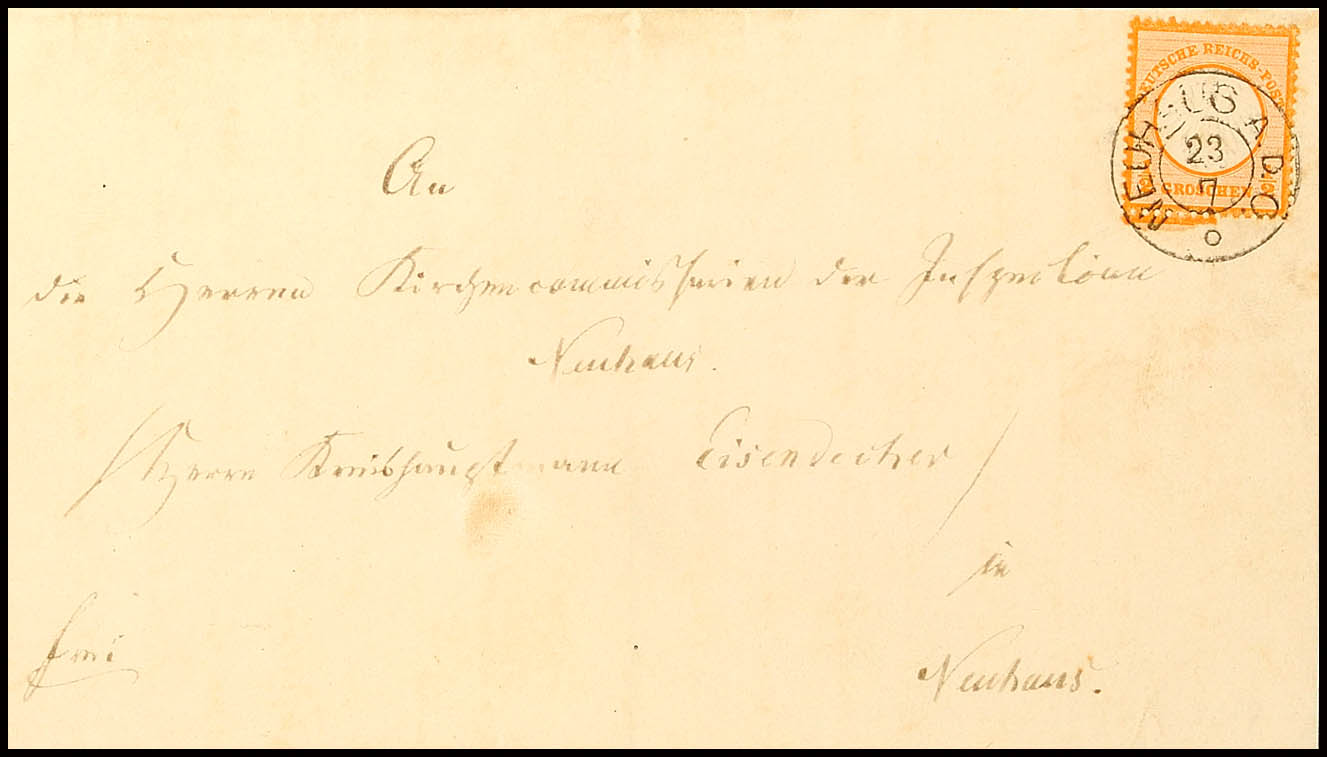 DEUTSCHE REICHS-POST
1/2 GROSCHEN 1/2
NEUHAUS A. D. O.
23
7
An
die Herren Kirchencommissarien der Inspection
Neuhaus.
/Herrn Kreishauptmann Eisendecher/
in
Neuhaus.
frei